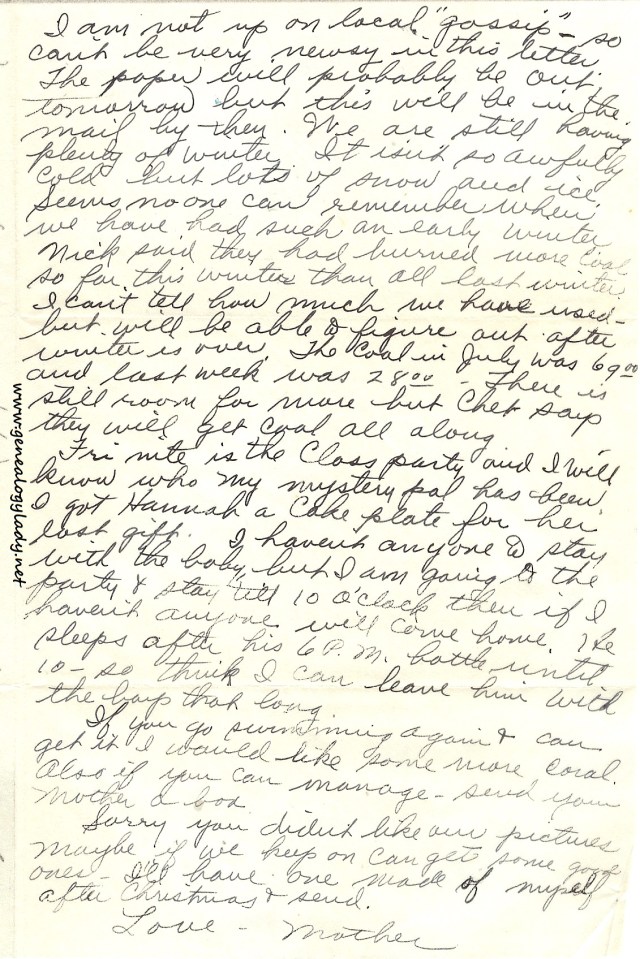 I am not up on local "gossip" - so
can't be very newsy in this letter
The paper will probably be out
tomorrow but this will be in the
mail by then. We are still having
plenty of winter It isn't so awfully
cold but lots of snow and ice.
Seems no one can remember when
we have had such an early winter
Nick said they had burned more coal
so far this winter than all last winter.
I can't tell how much we have used -
but will be able to figure out after
winter is over. The coal in July was 69.00
and last week was 28.00 - There is
still room for more but Chet says
they will get coal all along
Fri nite is the Class party and I will
know who my mystery pal has been.
I got Hannah a Cake plate for her
last gift. I haven't anyone to stay
with the baby but I am going to the
party & stay till 10 O'clock then if I
haven't anyone will come home. He
sleeps after his 6 P.M. bottle until
10 - so think I can leave him with
the boys that long
If you go swimming again & can
get it I would like some more coral.
Also if you can manage - send your
Mother a box
Sorry you didn't like our pictures
maybe if we keep on can get some good
ones - I'll have one made of myself
after Christmas & send.
Love - Mother
www.genealogylady.net